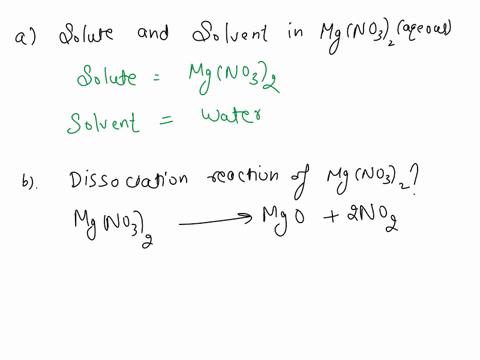 a) Solute and Solvent in Mg(NO3)2 (aqeous)
Solute = Mg(NO3)2
Solvent = Water
b). Dissociation reaction of Mg(NO3)2?
Mg(NO3)2 → MgO + 2NO2